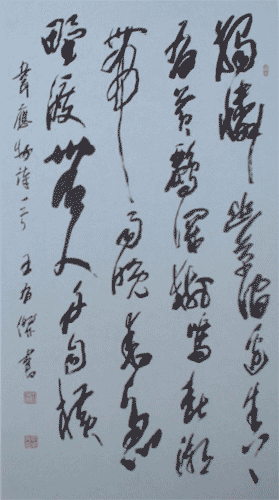 獨憐幽草澗邊生上
有黃鸝深樹鳴春潮
帶雨晚來急
野渡無人舟自橫
韋應物詩一首 王有傑書